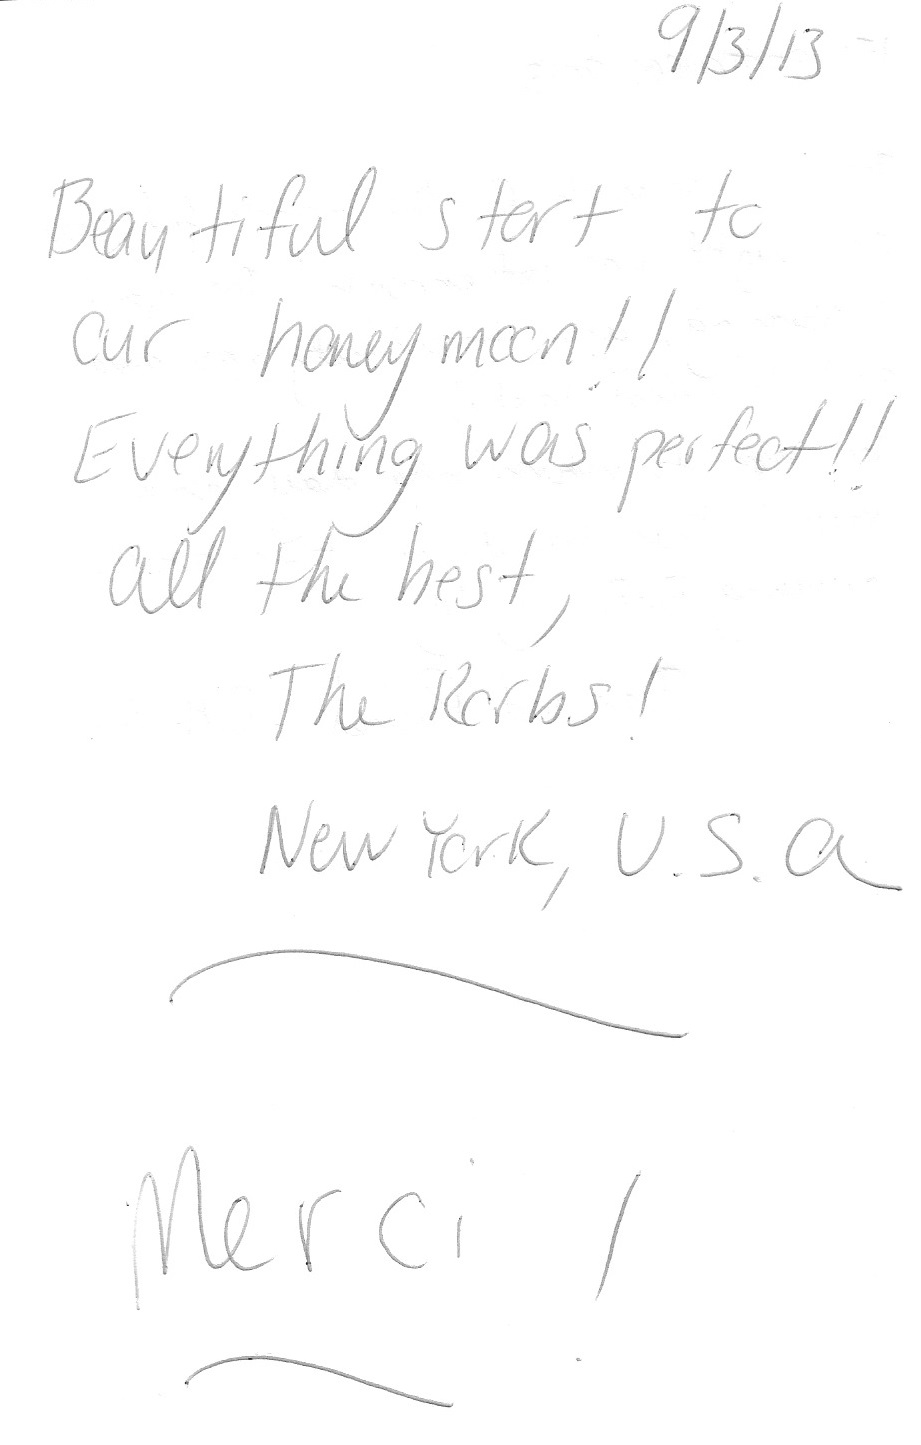 9/3/13
Beautiful start to
our honeymoon!!
Everything was perfect!!
all the best,
The
New York, U.S.a
Merci !